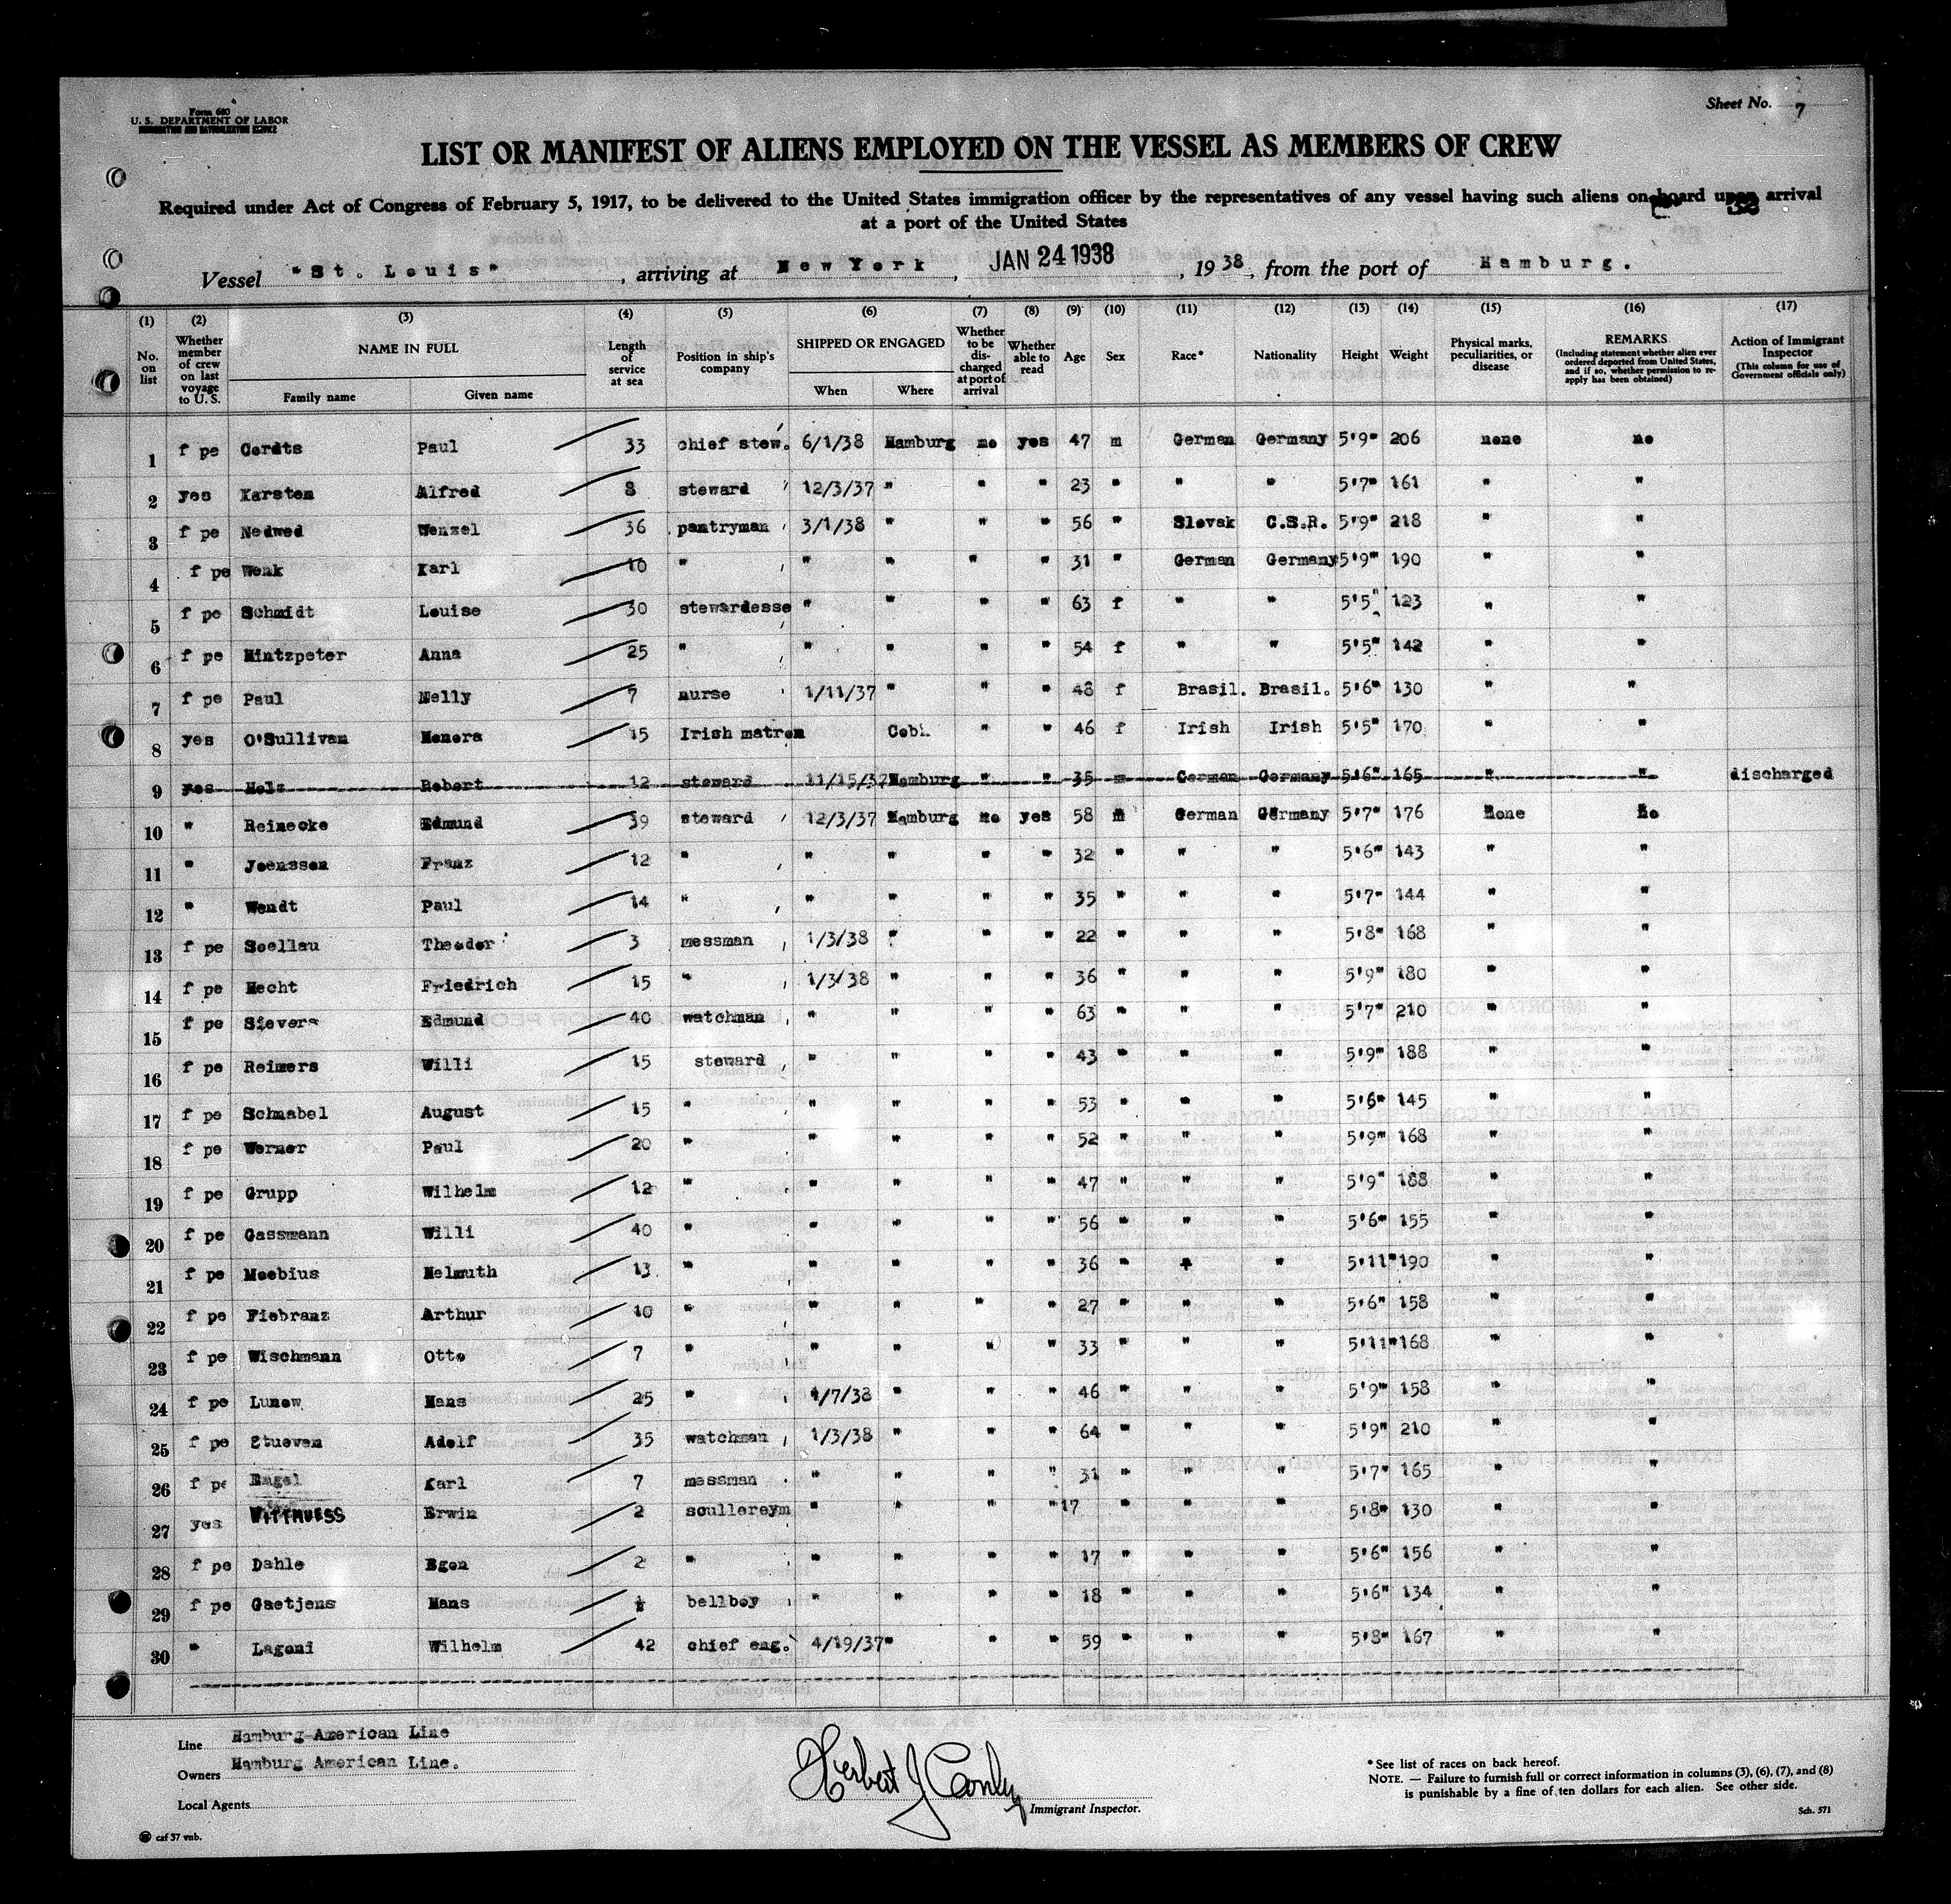 Form 680
U. S. DEPARTMENT OF LABOR
IMMIGRATION AND NATURALIZATION SERVICE
Sheet No. 7
LIST OR MANIFEST OF ALIENS EMPLOYED ON THE VESSEL AS MEMBERS OF CREW
Required under Act of Congress of February 5, 1917, to be delivered to the United States immigration officer by the representatives of any vessel having such aliens on board upon arrival
at a port of the United States
Vessel "St. Louis", arriving at New York, JAN 24 1938, 1938, from the port of Hamburg.
(1) No. on list (2) Whether member of crew on last voyage to U. S. (3) NAME IN FULL Family name Given name (4) Length of service at sea (5) Position in ship's company (6) SHIPPED OR ENGAGED When Where (7) Whether to be discharged at port of arrival (8) Whether able to read (9) Age (10) Sex (11) Race* (12) Nationality (13) Height (14) Weight (15) Physical marks, peculiarities, or disease (16) REMARKS (Including statement whether alien ever ordered deported from United States, and if so, whether permission to reapply has been obtained) (17) Action of Immigrant Inspector (This column for use of Government officials only)
1 f pe Gerdts Paul 33 chief stew. 6/1/38 Hamburg no yes 47 m German Germany 5'9" 206 none no
2 yes Karsten Alfred 8 steward 12/3/37 " " " 23 " " " 5'7" 161 " "
3 f pe Nedwed Wenzel 36 pantryman 3/1/38 " " " 56 " Slovak C.S.R. 5'9" 218 " "
4 f pe Wenk Karl 10 " " " " " 31 " German Germany 5'9" 190 " "
5 f pe Schmidt Louise 30 stewardesse " " " " 63 f " " 5'5" 123 " "
6 f pe Hintzpeter Anna 25 " " " " " 54 f " " 5'5" 142 " "
7 f pe Paul Nelly 7 nurse 1/11/37 " " " 48 f Brasil. Brasil. 5'6" 130 " "
8 yes O'Sullivan Honora 15 Irish matron Cobh " " 46 f Irish Irish 5'5" 170 " "
9 yes Holz Robert 12 steward 11/15/37 Hamburg " " 35 m German Germany 5'6" 165 " " discharged
10 " Reinecke Edmund 39 steward 12/3/37 Hamburg no yes 58 m German Germany 5'7" 176 none no
11 " Joenssen Franz 12 " " " " " 32 " " " 5'6" 143 " "
12 " Wendt Paul 14 " " " " " 35 " " " 5'7" 144 " "
13 f pe Soellau Theodor 3 messman 1/3/38 " " " 22 " " " 5'8" 168 " "
14 f pe Hecht Friedrich 15 " 1/3/38 " " " 36 " " " 5'9" 180 " "
15 f pe Sievers Edmund 40 watchman " " " " 63 " " " 5'7" 210 " "
16 f pe Reimers Willi 15 steward " " " " 43 " " " 5'9" 188 " "
17 f pe Schnabel August 15 " " " " " 53 " " " 5'6" 145 " "
18 f pe Werner Paul 20 " " " " " 52 " " " 5'9" 168 " "
19 f pe Grupp Wilhelm 12 " " " " " 47 " " " 5'9" 188 " "
20 f pe Gassmann Willi 40 " " " " " 56 " " " 5'6" 155 " "
21 f pe Moebius Helmuth 13 " " " " " 36 " " " 5'11" 190 " "
22 f pe Fiebranz Arthur 10 " " " " " 27 " " " 5'6" 158 " "
23 f pe Wischmann Otto 7 " " " " " 33 " " " 5'11" 168 " "
24 f pe Lunow Hans 25 " 1/7/38 " " " 46 " " " 5'9" 158 " "
25 f pe Stueven Adolf 35 watchman 1/3/38 " " " 64 " " " 5'9" 210 " "
26 f pe Engel Karl 7 messman " " " " 31 " " " 5'7" 165 " "
27 yes WITTHUESS Erwin 2 scullerym " " " " 17 " " " 5'8" 130 " "
28 f pe Dahle Egon 2 " " " " " 17 " " " 5'6" 156 " "
29 f pe Gaetjens Hans ½ bellboy " " " " 18 " " " 5'6" 134 " "
30 " Lagoni Wilhelm 42 chief eng. 4/19/37 " " " 59 " " " 5'8" 167 " "
Line Hamburg-American Line
Owners Hamburg American Line.
Local Agents
Herbert J Conly
Immigrant Inspector.
* See list of races on back hereof.
NOTE. — Failure to furnish full or correct information in columns (3), (6), (7), and (8)
is punishable by a fine of ten dollars for each alien. See other side.
Sch. 571
caf 37 vnb.